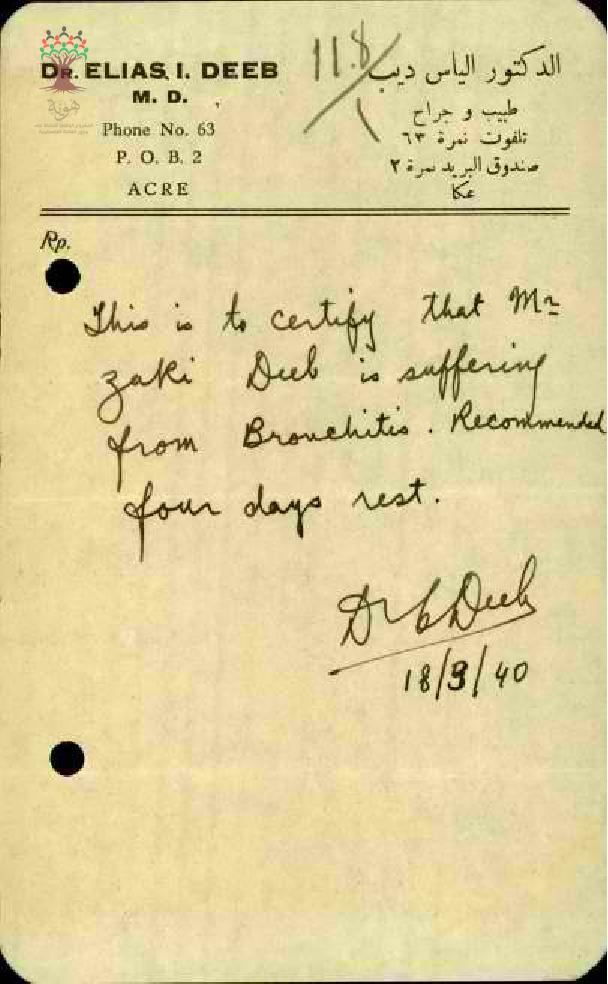 DR. ELIAS. I. DEEB
M. D.
Phone No. 63
P. O. B. 2
ACRE
الدكتور الياس ديب
طبيب و جراح
تلفون نمرة ٦٣
صندوق البريد نمرة ٢
عكا
هوية
118/1
Rp.
This is to certify that Mr
Zaki Deeb is suffering
from Bronchitis. Recommended
four days rest.
Dr E Deeb
18/9/40